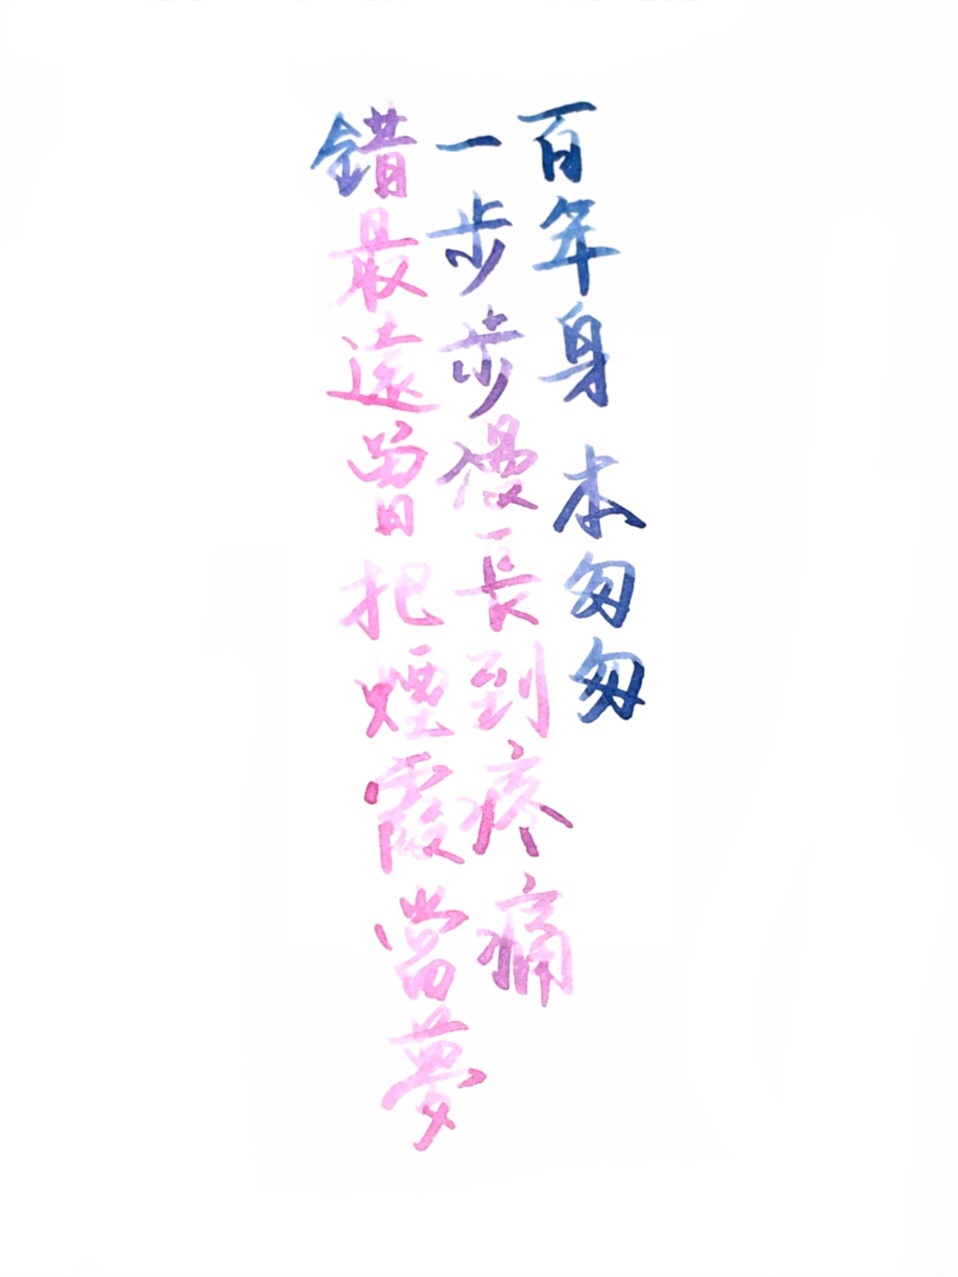 百年身 本匆匆
一步步漫長到疼痛
錯最遠曾把煙霞當夢